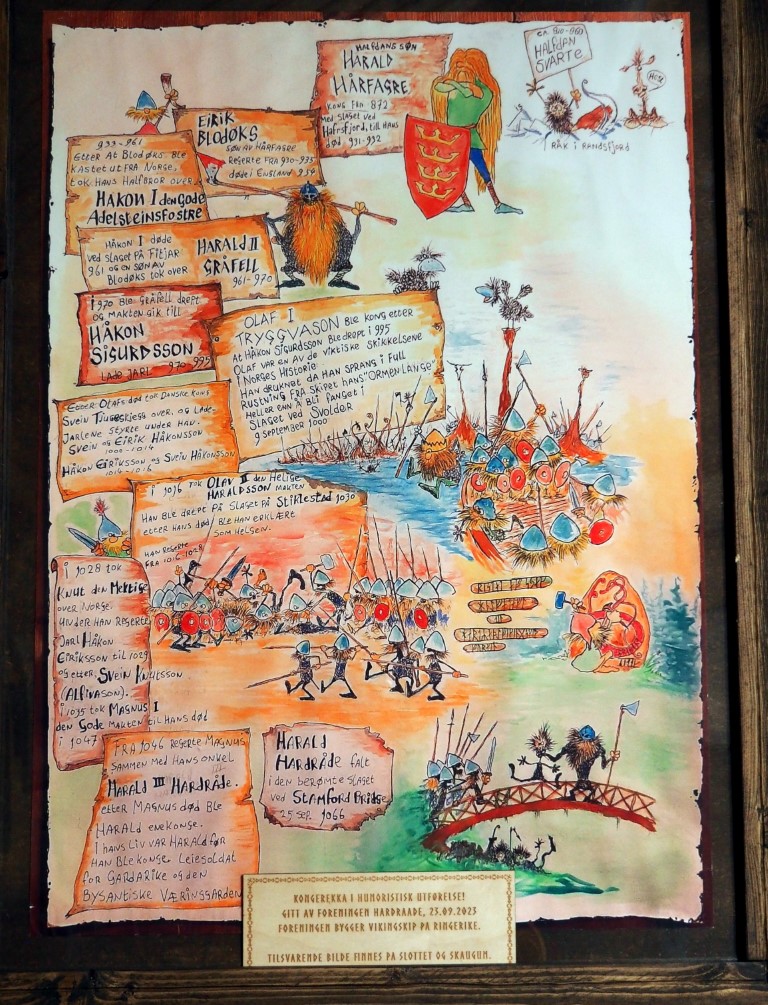 ca. 820-860
HALFDAN
SVARTE
HICK
RÅK I RANDSFJORD
HALFDANSSØN
HARALD
HÅRFAGRE
KONG FRA 872
MED SLAGET VED
HAFRSFJORD, TILL HANS
DØD 931-932
EIRIK
BLODØKS
SØN AV HÅRFAGRE
REGERTE FRA 930-935
DØDE I ENGLAND 954
933-961
ETTER AT BLODØKS BLE
KASTET UT FRA NORGE,
TOK HANS HALFBROR OVER
HÅKON I DEN GODE
ADELSTEINSFOSTRE
HÅKON I DØDE
VED SLAGET PÅ FITJAR
961 OG EN SØN AV
BLODØKS TOK OVER
HARALD II
GRÅFELL
961-970
I 970 BLE GRÅFELL DREPT
OG MAKTEN GIK TILL
HÅKON
SIGURDSSON
LADE JARL 970-995
OLAF I
TRYGGVASON BLE KONG ETTER
AT HÅKON SIGURDSSON BLE DREPT I 995
OLAF VAR EN AV DE VIKTISKE SKIKKELSENE
I NORGES HISTORIE.
HAN DRUKNET DA HAN SPRANG I FULL
RUSTNING FRA SKIPET HANS "ORMEN LANGE"
HELLER ENN Å BLI FANGET I
SLAGET VED SVOLDER
9 SEPTEMBER 1000
ETTER OLAFS DØD TOK DANSKE KONG
SVEIN TJUGESKJEGG OVER. OG LADE-
JARLENE STYRTE UNDER HAN.
SVEIN OG EIRIK HÅKONSSON
1000-1014
HÅKON EIRIKSSON OG SVEIN HÅKONSSON
1014-1016
I 1016 TOK OLAV II DEN HELIGE
HARALDSSON MAKTEN
HAN BLE DREPT PÅ SLAGET PÅ STIKLESTAD 1030
ETTER HANS DØD BLE HAN ERKLÆRT
SOM HELGEN.
HAN REGERTE
FRA 1016-1028
I 1028 TOK
KNUT DEN MEKTIGE
OVER NORGE.
UNDER HAN REGERTE
JARL HÅKON
EIRIKSSON TIL 1029
OG ETTER, SVEIN KNUTSSON
(ALFIVASON).
I 1035 TOK MAGNUS I
DEN GODE MAKTEN TIL HANS DØD
I 1047
FRA 1046 REGERTE MAGNUS
SAMMEN MED HANS ONKEL
HARALD III HARDRÅDE.
ETTER MAGNUS DØD BLE
HARALD ENEKONGE.
I HANS LIV VAR HARALD FØR
HAN BLE KONGE. LEIESOLDAT
FOR GARDARIKE OG DEN
BYSANTISKE VÆRINGGARDEN
HARALD
HARDRÅDE FALT
I DEN BERØMTE SLAGET
VED STAMFORD BRIDGE
25 SEP. 1066
KONGEREKKA I HUMORISTISK UTFØRELSE!
GITT AV FORENINGEN HARDRAADE, 23.09.2023
FORENINGEN BYGGER VIKINGSKIP PÅ RINGERIKE.
TILSVARENDE BILDE FINNES PÅ SLOTTET OG SKAUGUM.